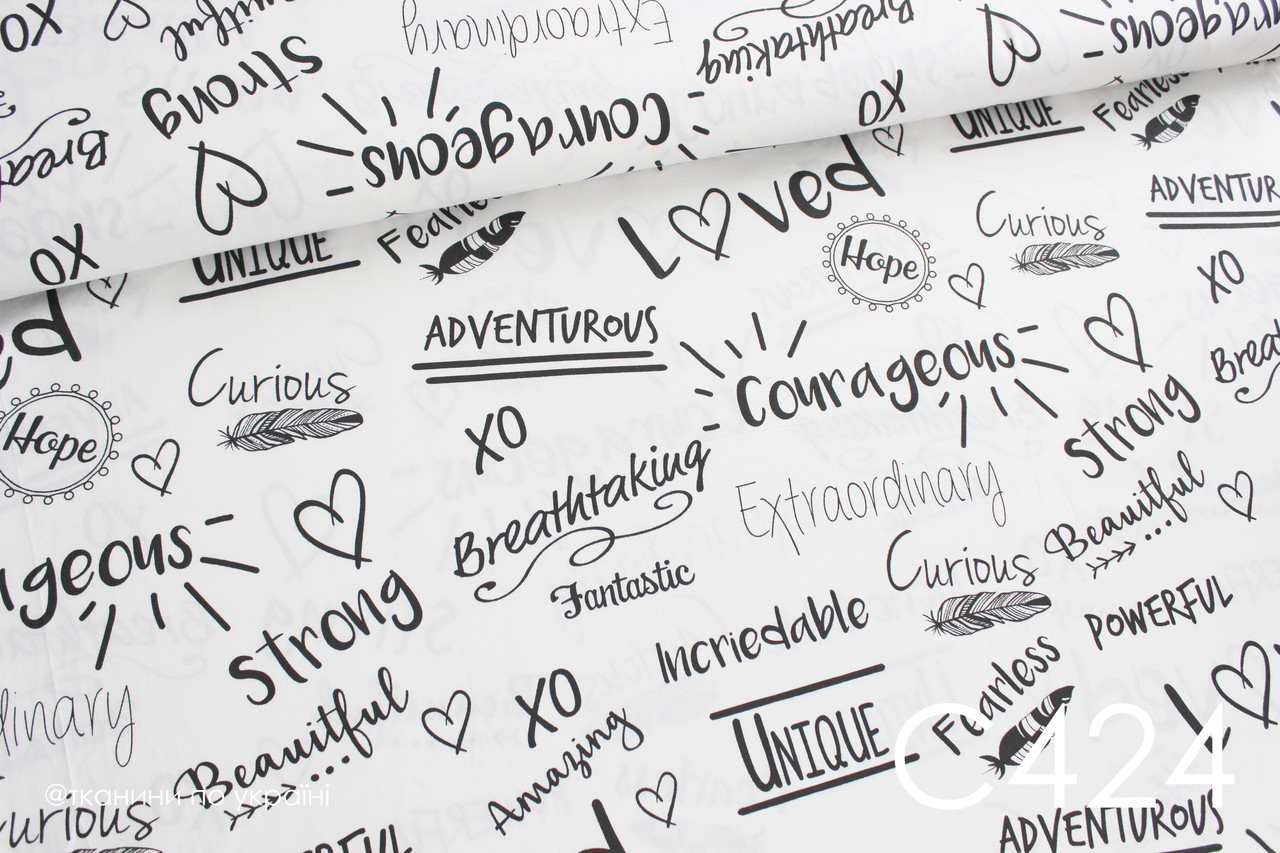 XO
Beautiful
Extraordinary
Breathtaking
Courageous
Strong
Courageous
XO
Breathtaking
UNIQUE
Fearless
XO
UNIQUE
Fearless
Loved
ADVENTUROUS
Curious
Hope
ADVENTUROUS
XO
Curious
Hope
Courageous
XO
Breathtaking
Strong
Extraordinary
Beauitful
Fantastic
Curious
POWERFUL
Incriedable
Strong
Beauitful
XO
Amazing
UNIQUE
Fearless
C424
@тканини по україні
Curious
ADVENTUROUS